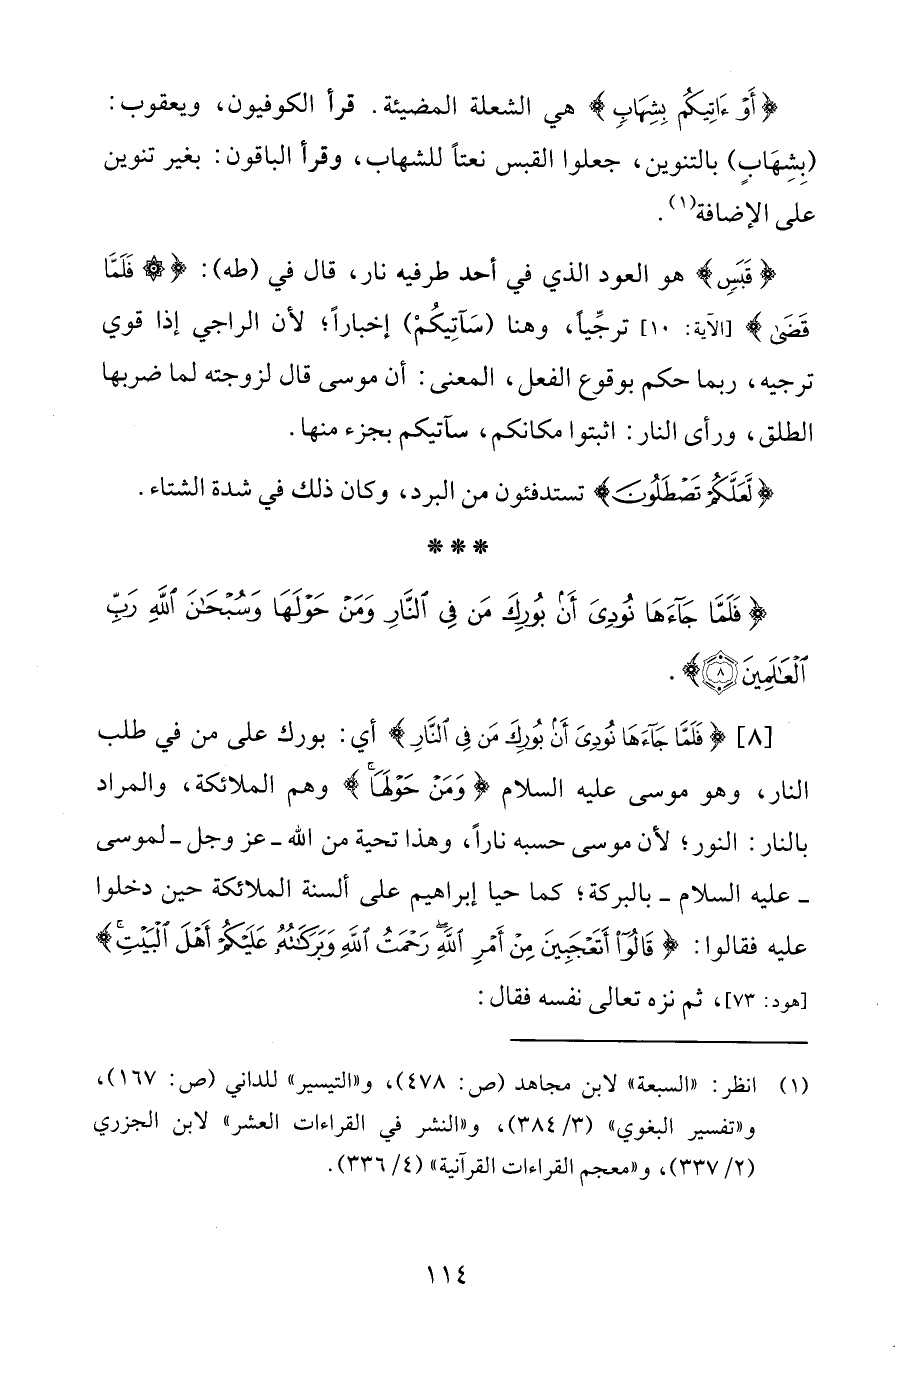 ﴿أَوْ ءَاتِيكُم بِشِهَابٍ﴾ هي الشعلة المضيئة. قرأ الكوفيون، ويعقوب:
(بِشِهَابٍ) بالتنوين، جعلوا القبس نعتاً للشهاب، وقرأ الباقون: بغير تنوين
على الإضافة(١).
﴿قَبَسٍ﴾ هو العود الذي في أحد طرفيه نار، قال في (طه): ﴿۞ فَلَمَّا
قَضَىٰ﴾ [الآية: ١٠] ترجِّياً، وهنا (سَآتِيكُمْ) إخباراً؛ لأن الراجي إذا قوي
ترجيه، ربما حكم بوقوع الفعل، المعنى: أن موسى قال لزوجته لما ضربها
الطلق، ورأى النار: اثبتوا مكانكم، سآتيكم بجزء منها.
﴿لَّعَلَّكُمْ تَصْطَلُونَ﴾ تستدفئون من البرد، وكان ذلك في شدة الشتاء.
* * *
﴿فَلَمَّا جَآءَهَا نُودِىَ أَنۢ بُورِكَ مَن فِى ٱلنَّارِ وَمَنْ حَوْلَهَا وَسُبْحَٰنَ ٱللَّهِ رَبِّ
ٱلْعَٰلَمِينَ ٨﴾.
[٨] ﴿فَلَمَّا جَآءَهَا نُودِىَ أَنۢ بُورِكَ مَن فِى ٱلنَّارِ﴾ أي: بورك على من في طلب
النار، وهو موسى عليه السلام ﴿وَمَنْ حَوْلَهَاۚ﴾ وهم الملائكة، والمراد
بالنار: النور؛ لأن موسى حسبه ناراً، وهذا تحية من الله ـ عز وجل ـ لموسى
ـ عليه السلام ـ بالبركة؛ كما حيا إبراهيم على ألسنة الملائكة حين دخلوا
عليه فقالوا: ﴿قَالُوٓا۟ أَتَعْجَبِينَ مِنْ أَمْرِ ٱللَّهِۖ رَحْمَتُ ٱللَّهِ وَبَرَكَٰتُهُۥ عَلَيْكُمْ أَهْلَ ٱلْبَيْتِۚ﴾
[هود: ٧٣]، ثم نزه تعالى نفسه فقال:
(١) انظر: «السبعة» لابن مجاهد (ص: ٤٧٨)، و«التيسير» للداني (ص: ١٦٧)،
و«تفسير البغوي» (٣/ ٣٨٤)، و«النشر في القراءات العشر» لابن الجزري
(٢/ ٣٣٧)، و«معجم القراءات القرآنية» (٤/ ٣٣٦).
١١٤